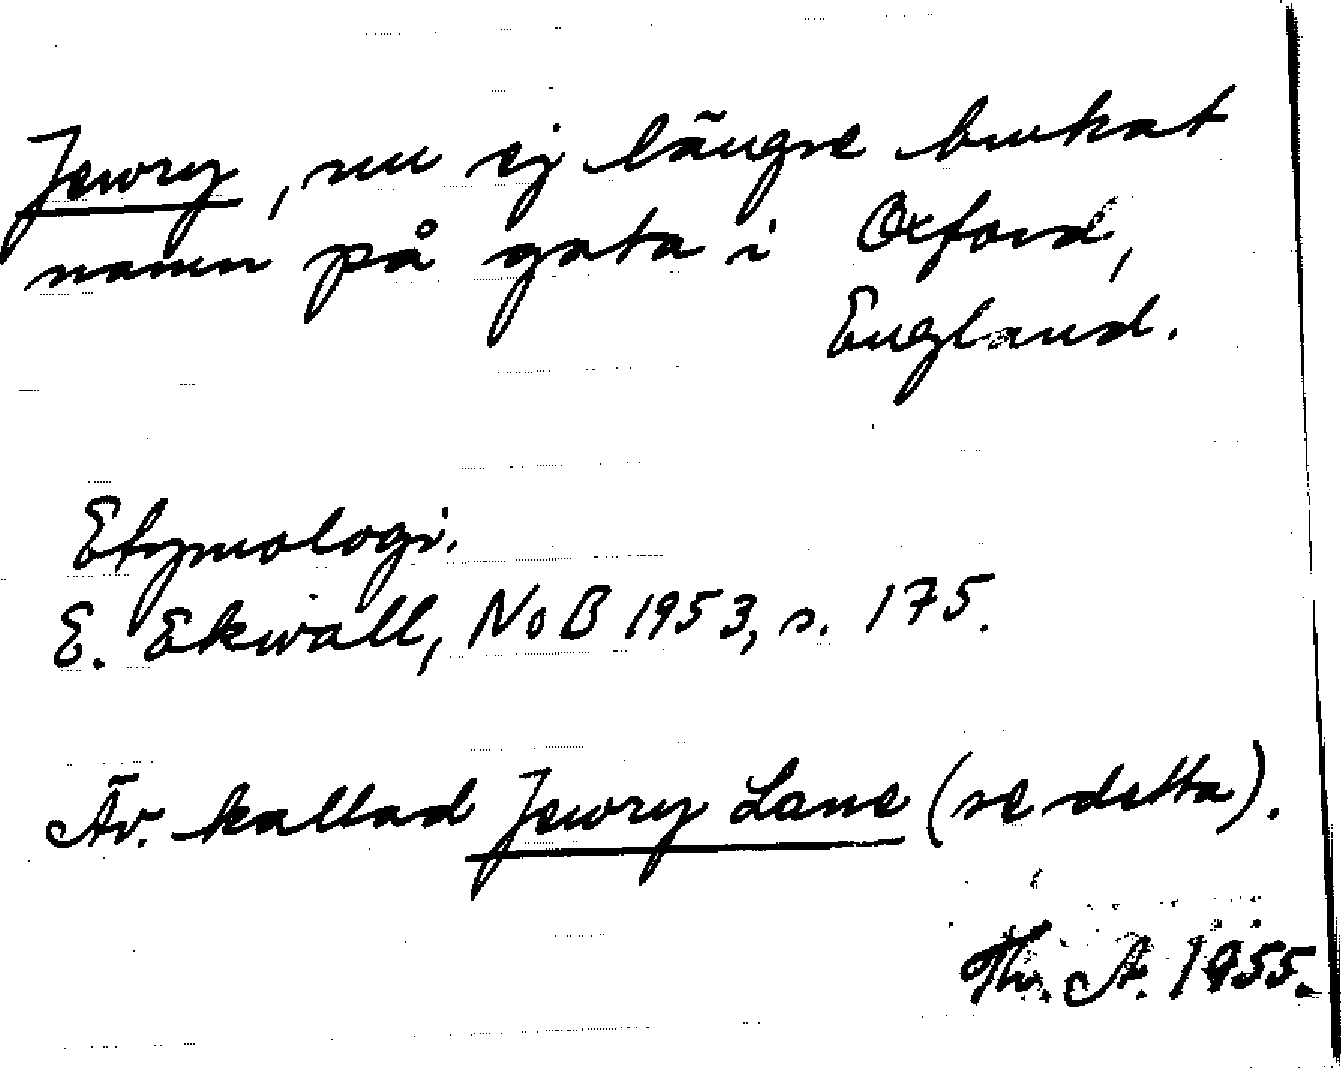 Jewry, nu ej längre brukat
namn på gata i Oxford,
England.
Etymologi.
E. Ekwall, NoB 1953, s. 175.
Äv. kallad Jewry Lane (se detta).
Th. A. 1955.